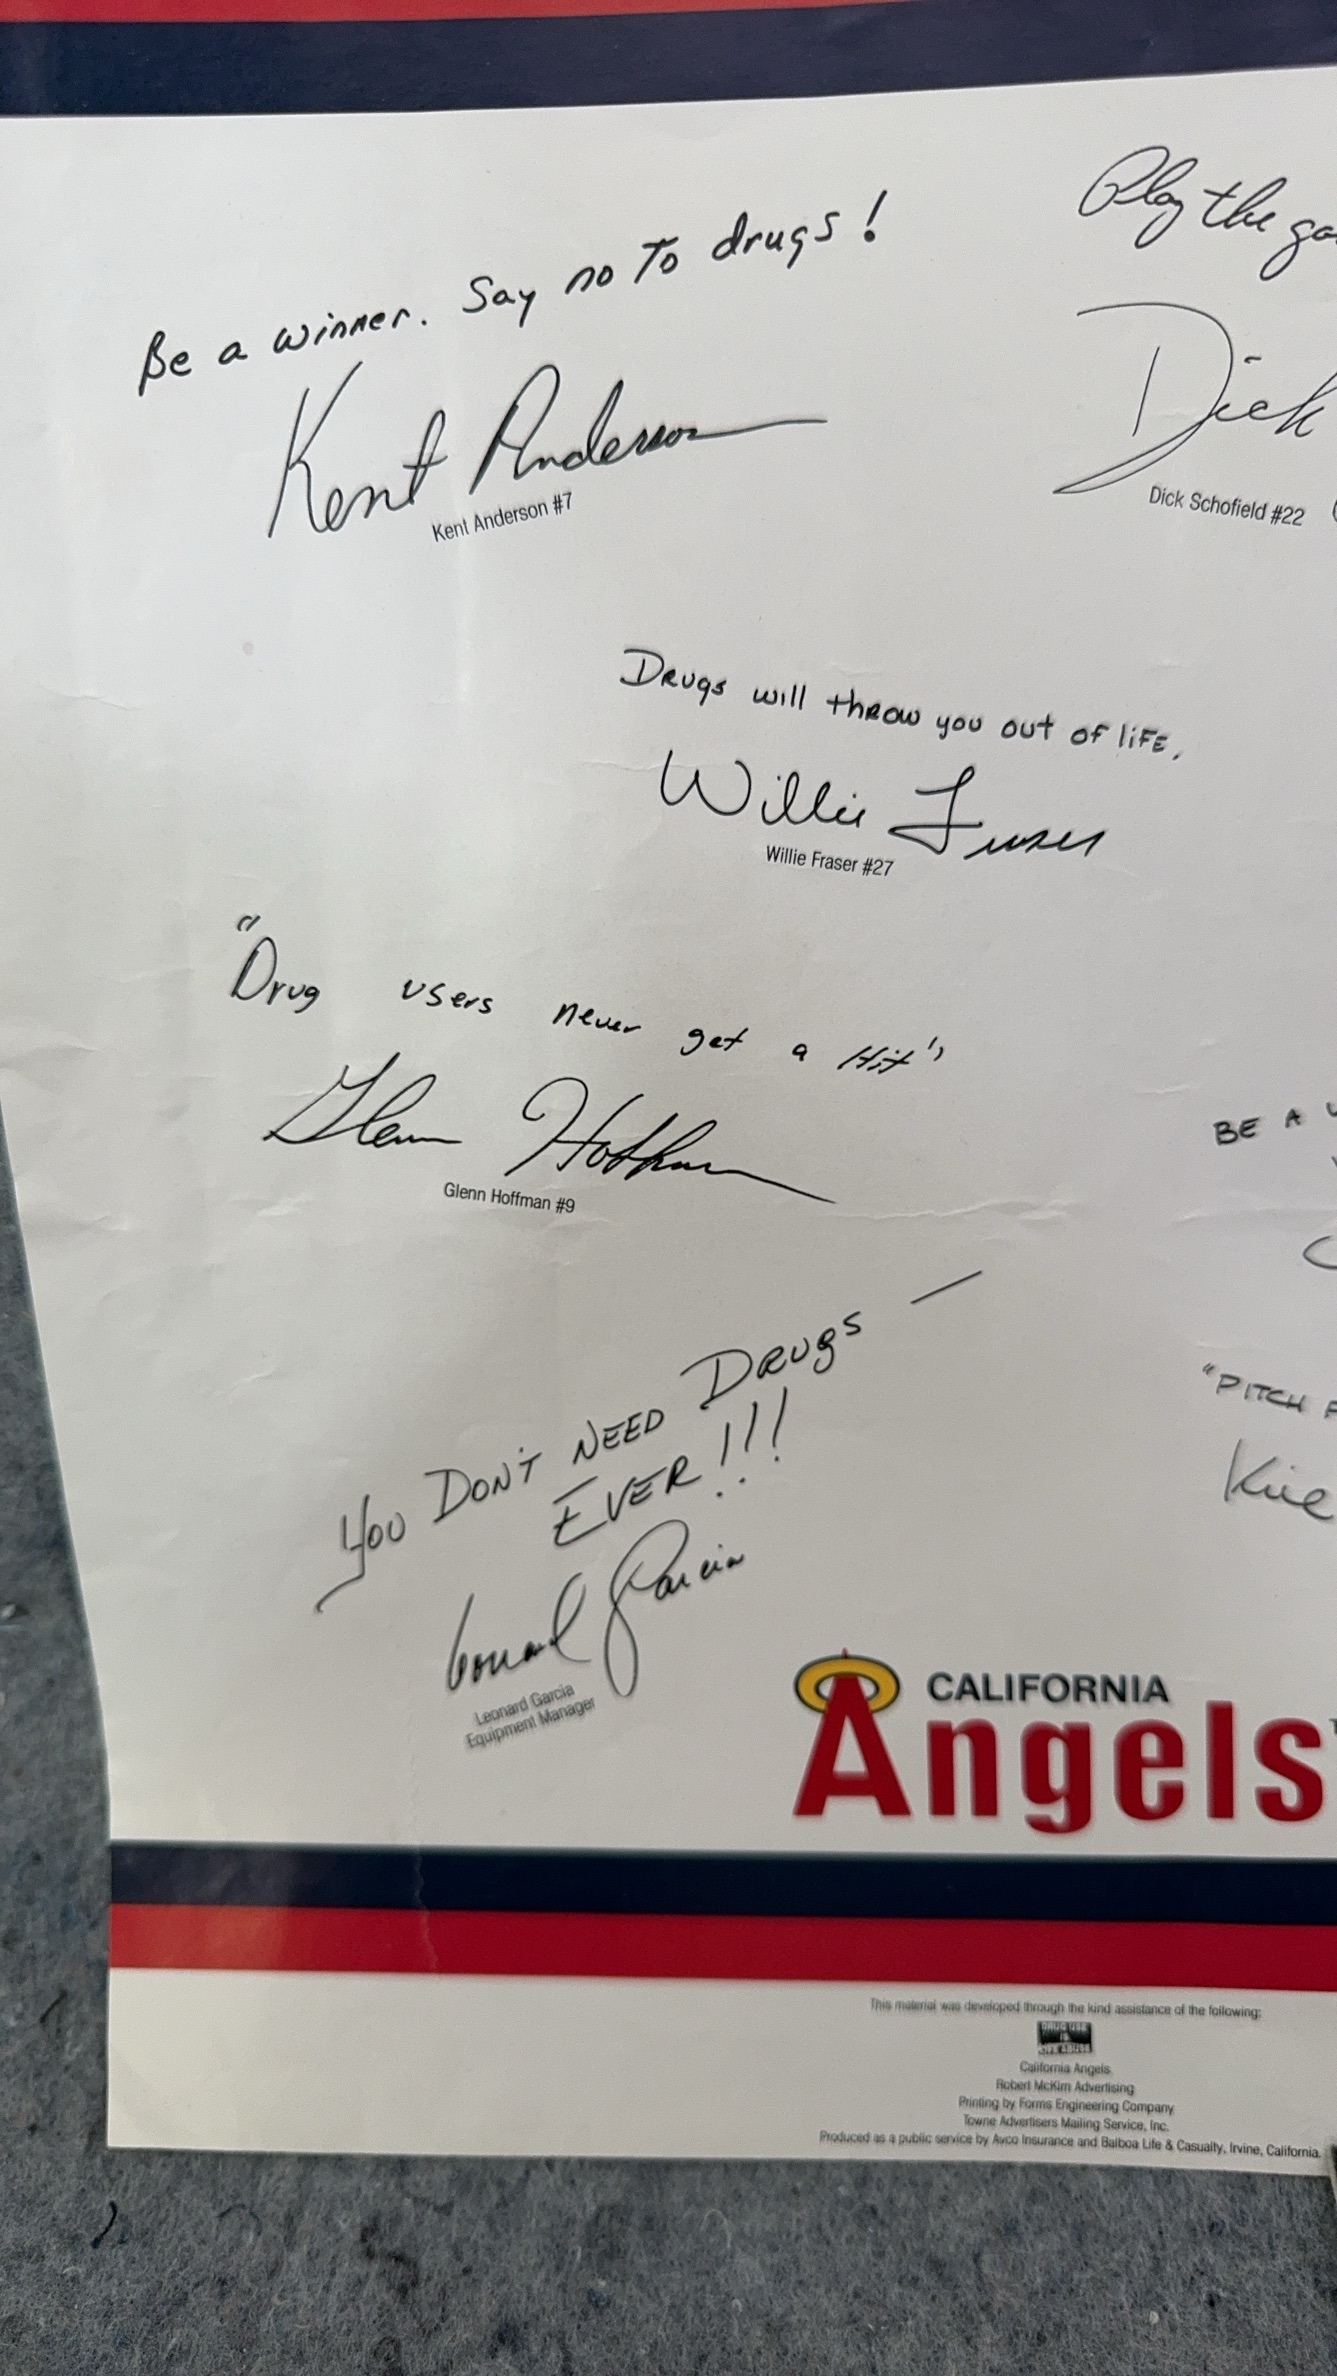 Be a winner. Say no To drugs!
Kent Anderson
Kent Anderson #7
Play the
Dick
Dick Schofield #22
Drugs will throw you out of life.
Willie Fraser
Willie Fraser #27
"Drug users never get a Hit"
Glenn Hoffman
Glenn Hoffman #9
BE A
"PITCH
You DON'T NEED DRUGS —
EVER!!!
Leonard Garcia
Leonard Garcia
Equipment Manager
CALIFORNIA
Angels
This material was developed through the kind assistance of the following:
DRUG USE
IS
LIFE ABUSE
California Angels
Robert McKim Advertising
Printing by Forms Engineering Company
Towne Advertisers Mailing Service, Inc.
Produced as a public service by Avco Insurance and Balboa Life & Casualty, Irvine, California.